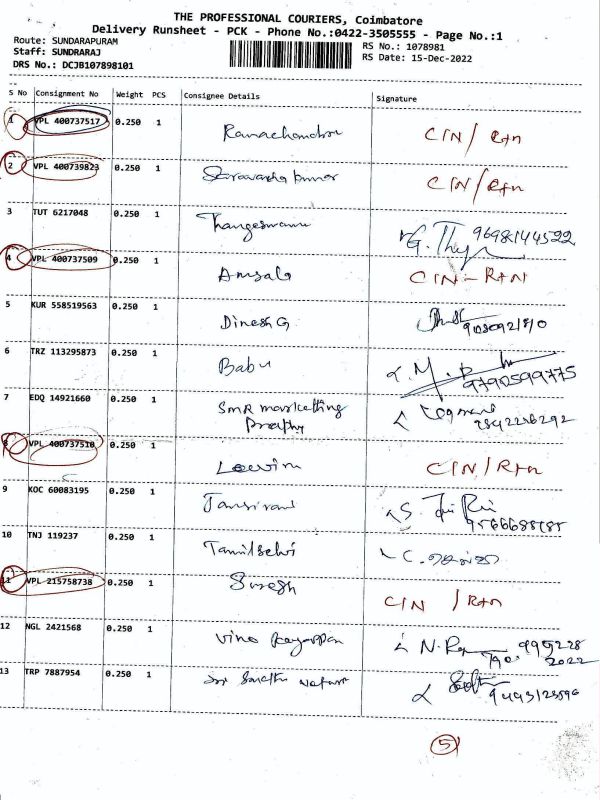 THE PROFESSIONAL COURIERS, Coimbatore
Delivery Runsheet - PCK - Phone No.:0422-3505555 - Page No.:1
Route: SUNDARAPURAM
Staff: SUNDRARAJ
DRS No.: DCJB107898101
RS No.: 1078981
RS Date: 15-Dec-2022
S No Consignment No Weight PCS Consignee Details Signature
1 VPL 400737517 0.250 1 Ramachandran CIN / Rtn
2 VPL 400739823 0.250 1 CIN / Rtn
3 TUT 6217048 0.250 1 Thangeswami 9698144522
4 VPL 400737509 0.250 1 Amsala CIN - RTN
5 KUR 558519563 0.250 1 Dinesh G
6 TRZ 113295873 0.250 1 Babu 9790599775
7 EDQ 14921660 0.250 1 SMR marketting
8 VPL 400737510 0.250 1 CIN / Rtn
9 KOC 60083195 0.250 1
10 TNJ 119237 0.250 1 Tamilselvi
11 VPL 215758738 0.250 1 Suresh CIN / Rtn
12 NGL 2421568 0.250 1
13 TRP 7887954 0.250 1 Sri
5